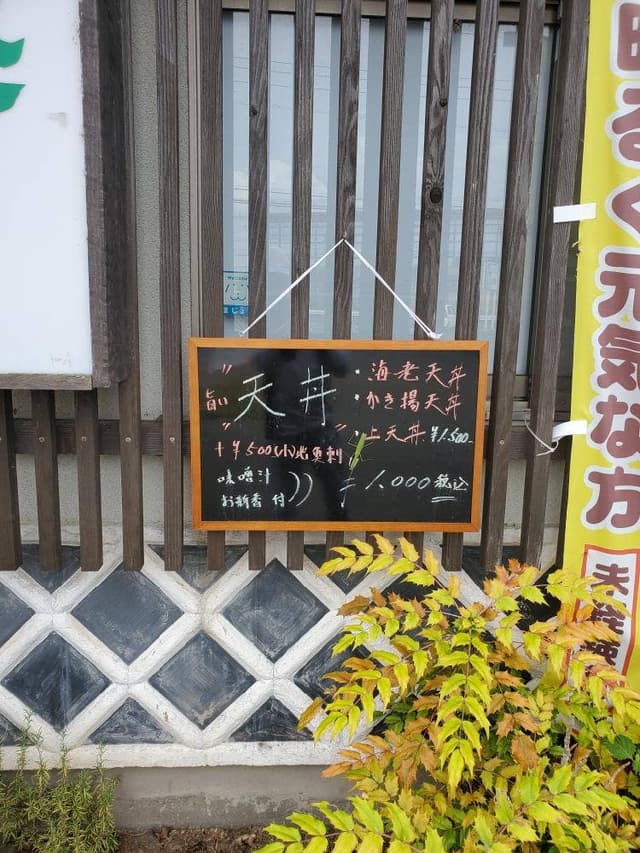 旨い
"天丼"
・海老天丼
・かき揚天丼
・上天丼 ¥1.500-
+¥500(小)
味噌汁
お新香 付
1.000税込
明るく元気な方